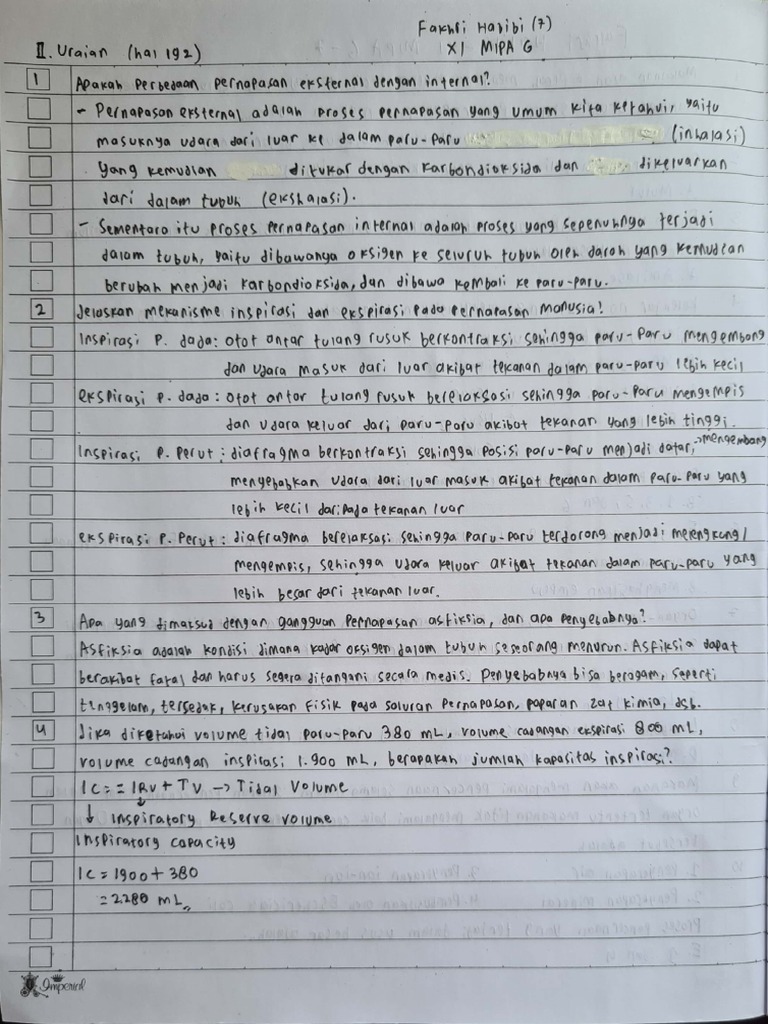 Fakhri Habibi (7)
XI MIPA G
II. Uraian (hal 192)
1 Apakah Perbedaan pernapasan eksternal dengan internal?
- Pernapasan eksternal adalah proses pernapasan yang umum kita ketahui, yaitu
masuknya udara dari luar ke dalam paru-paru (inhalasi)
yang kemudian ditukar dengan karbondioksida dan dikeluarkan
dari dalam tubuh (ekshalasi).
- Sementara itu proses pernapasan internal adalah proses yang sepenuhnya terjadi
dalam tubuh, yaitu dibawanya oksigen ke seluruh tubuh oleh darah yang kemudian
berubah menjadi karbondioksida, dan dibawa kembali ke paru-paru.
2 Jelaskan mekanisme inspirasi dan ekspirasi pada pernapasan manusia!
Inspirasi P. dada: otot antar tulang rusuk berkontraksi sehingga paru-paru mengembang
dan udara masuk dari luar akibat tekanan dalam paru-paru lebih kecil
ekspirasi p. dada: otot antar tulang rusuk berelaksasi sehingga paru-paru mengempis
dan udara keluar dari paru-paru akibat tekanan yang lebih tinggi.
Inspirasi P. Perut: diafragma berkontraksi sehingga posisi paru-paru menjadi datar, →mengembang
menyebabkan udara dari luar masuk akibat tekanan dalam paru-paru yang
lebih kecil daripada tekanan luar
ekspirasi P. Perut: diafragma berelaksasi sehingga paru-paru terdorong menjadi melengkung/
mengempis, sehingga udara keluar akibat tekanan dalam paru-paru yang
lebih besar dari tekanan luar.
3 Apa yang dimaksud dengan gangguan Pernapasan asfiksia, dan apa penyebabnya?
Asfiksia adalah kondisi dimana kadar oksigen dalam tubuh seseorang menurun. Asfiksia dapat
berakibat fatal dan harus segera ditangani secara medis. Penyebabnya bisa beragam, seperti
tenggelam, tersedak, kerusakan fisik pada saluran pernapasan, paparan zat kimia, dsb.
4 Jika diketahui volume tidal paru-paru 380 mL, volume cadangan ekspirasi 800 mL,
volume cadangan inspirasi 1.900 mL, berapakah jumlah kapasitas inspirasi?
IC = = IRV + TV → Tidal Volume
↓ ↓ Inspiratory Reserve volume
Inspiratory capacity
IC = 1900 + 380
= 2280 mL
Imperial